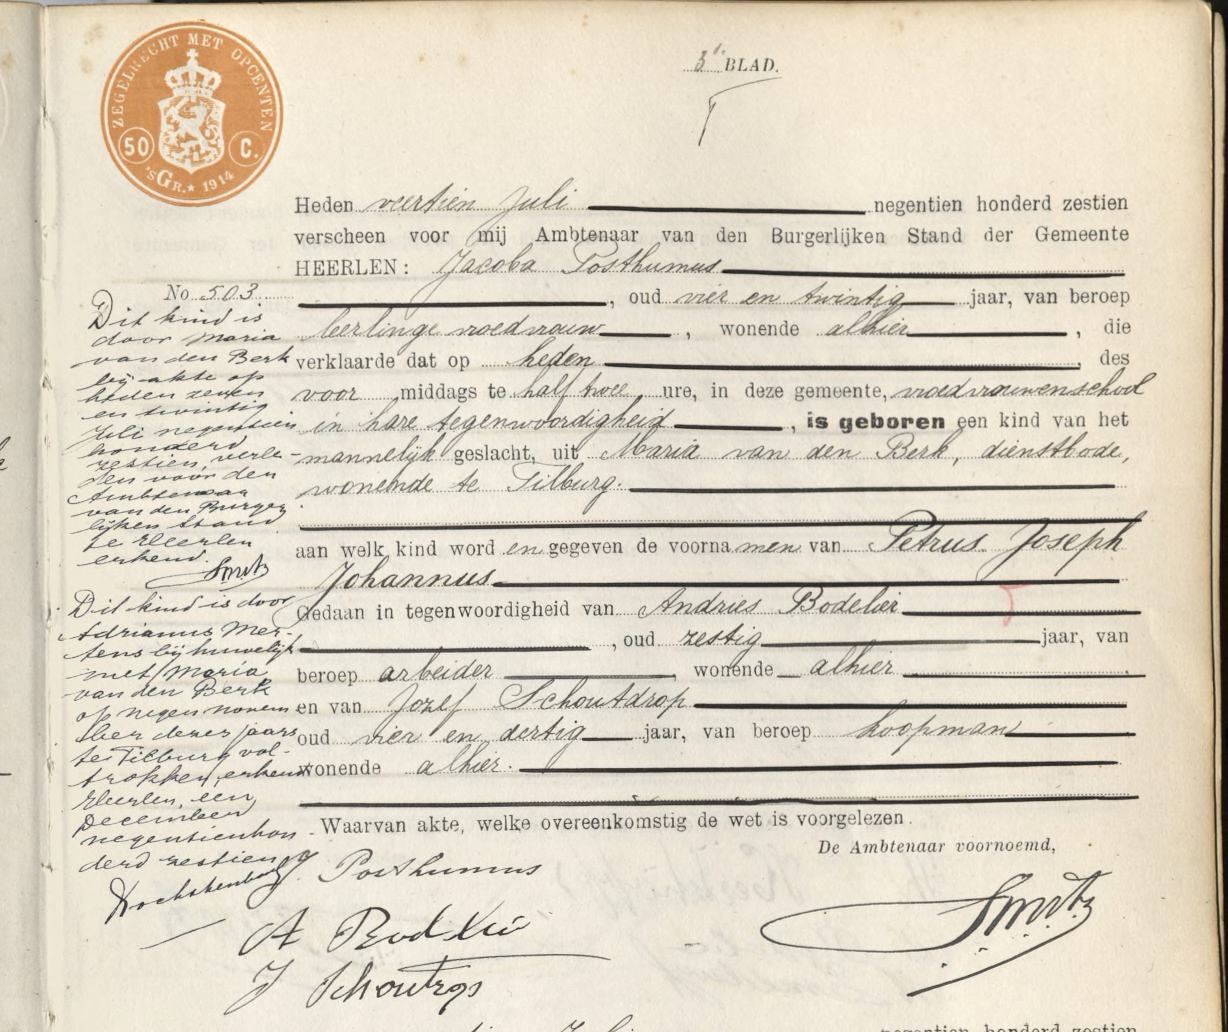 ZEGELRECHT MET OPCENTEN
50 C.
'sGR. ★ 1914
3e BLAD.
Heden veertien Juli negentien honderd zestien
verscheen voor mij Ambtenaar van den Burgerlijken Stand der Gemeente
HEERLEN: Jacoba Posthumus
, oud vier en twintig jaar, van beroep
leerlinge vroedvrouw, wonende alhier, die
verklaarde dat op heden, des
voor middags te half twee ure, in deze gemeente, vroedvrouwenschool
in hare tegenwoordigheid, is geboren een kind van het
mannelijk geslacht, uit Maria van den Berk, dienstbode,
wonende te Tilburg.
aan welk kind word en gegeven de voorna men van Petrus Joseph
Johannus
Gedaan in tegenwoordigheid van Andries Bodelier
, oud zestig jaar, van
beroep arbeider, wonende alhier
en van Jozef Schoutdrop
oud vier en dertig jaar, van beroep koopman
wonende alhier.
Waarvan akte, welke overeenkomstig de wet is voorgelezen.
De Ambtenaar voornoemd,
No 503.
Dit kind is
door Maria
van den Berk
bij akte op
heden zeven
en twintig
Juli negentien
honderd
zestien, verle-
den voor den
Ambtenaar
van den Burger
lijken Stand
te Heerlen
erkend.
Smitz
Dit kind is door
Adrianus Mer-
tens bij huwelijk
met Maria
van den Berk
op negen novem
ber dezer jaars
te Tilburg vol-
trokken, erkend
Heerlen, een
December
negentienhon
derd zestien
J. Posthumus
A Bodelier
J Schoutrop
Smitz
negentien honderd zestien